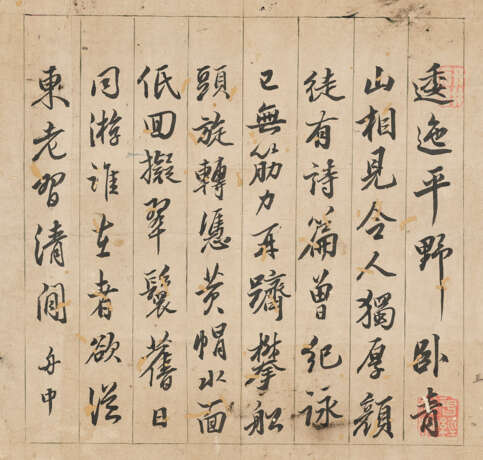 逶迤平野卧青
山相見令人獨厚顔
徒有詩篇曾紀詠
已無筋力再躋攀船
頭旋轉憑黄帽水面
低回擬翠鬟舊日
同游誰在者欲從
東老習清閒 舟中